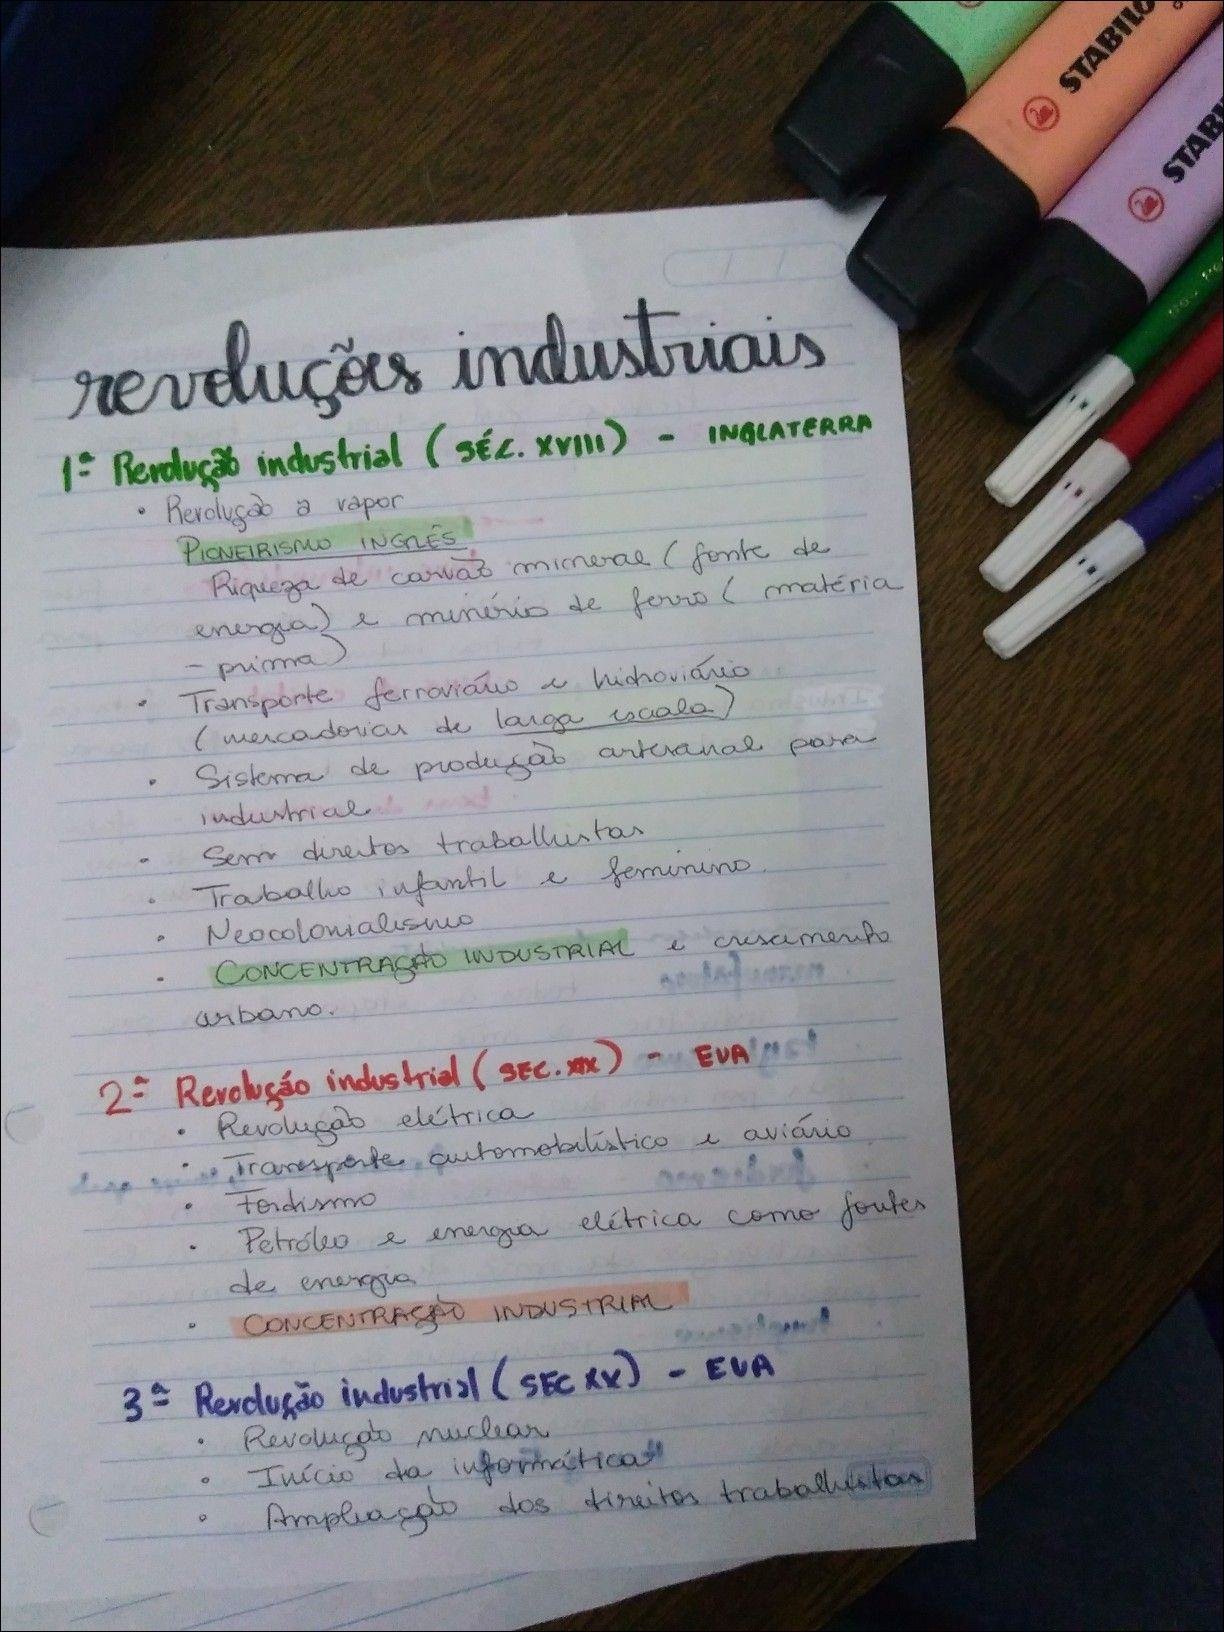 STABILO
STABILO
STAB
revoluções industriais
1ª Revolução industrial (SÉC. XVIII) - INGLATERRA
• Revolução a vapor
PIONEIRISMO INGLÊS
Riqueza de carvão mineral (fonte de
energia) e minério de ferro (matéria
-prima)
• Transporte ferroviário e hidroviário
(mercadorias de larga escala)
• Sistema de produção artesanal para
industrial
• Sem direitos trabalhistas
• Trabalho infantil e feminino.
• Neocolonialismo
• CONCENTRAÇÃO INDUSTRIAL e crescimento
urbano.
2ª Revolução industrial (SEC. XIX) - EUA
• Revolução elétrica
• Transporte automobilístico e aviário
• Fordismo
• Petróleo e energia elétrica como fontes
de energia
• CONCENTRAÇÃO INDUSTRIAL
3ª Revolução industrial (SEC XX) - EUA
• Revolução nuclear
• Início da informática
• Ampliação dos direitos trabalhistas